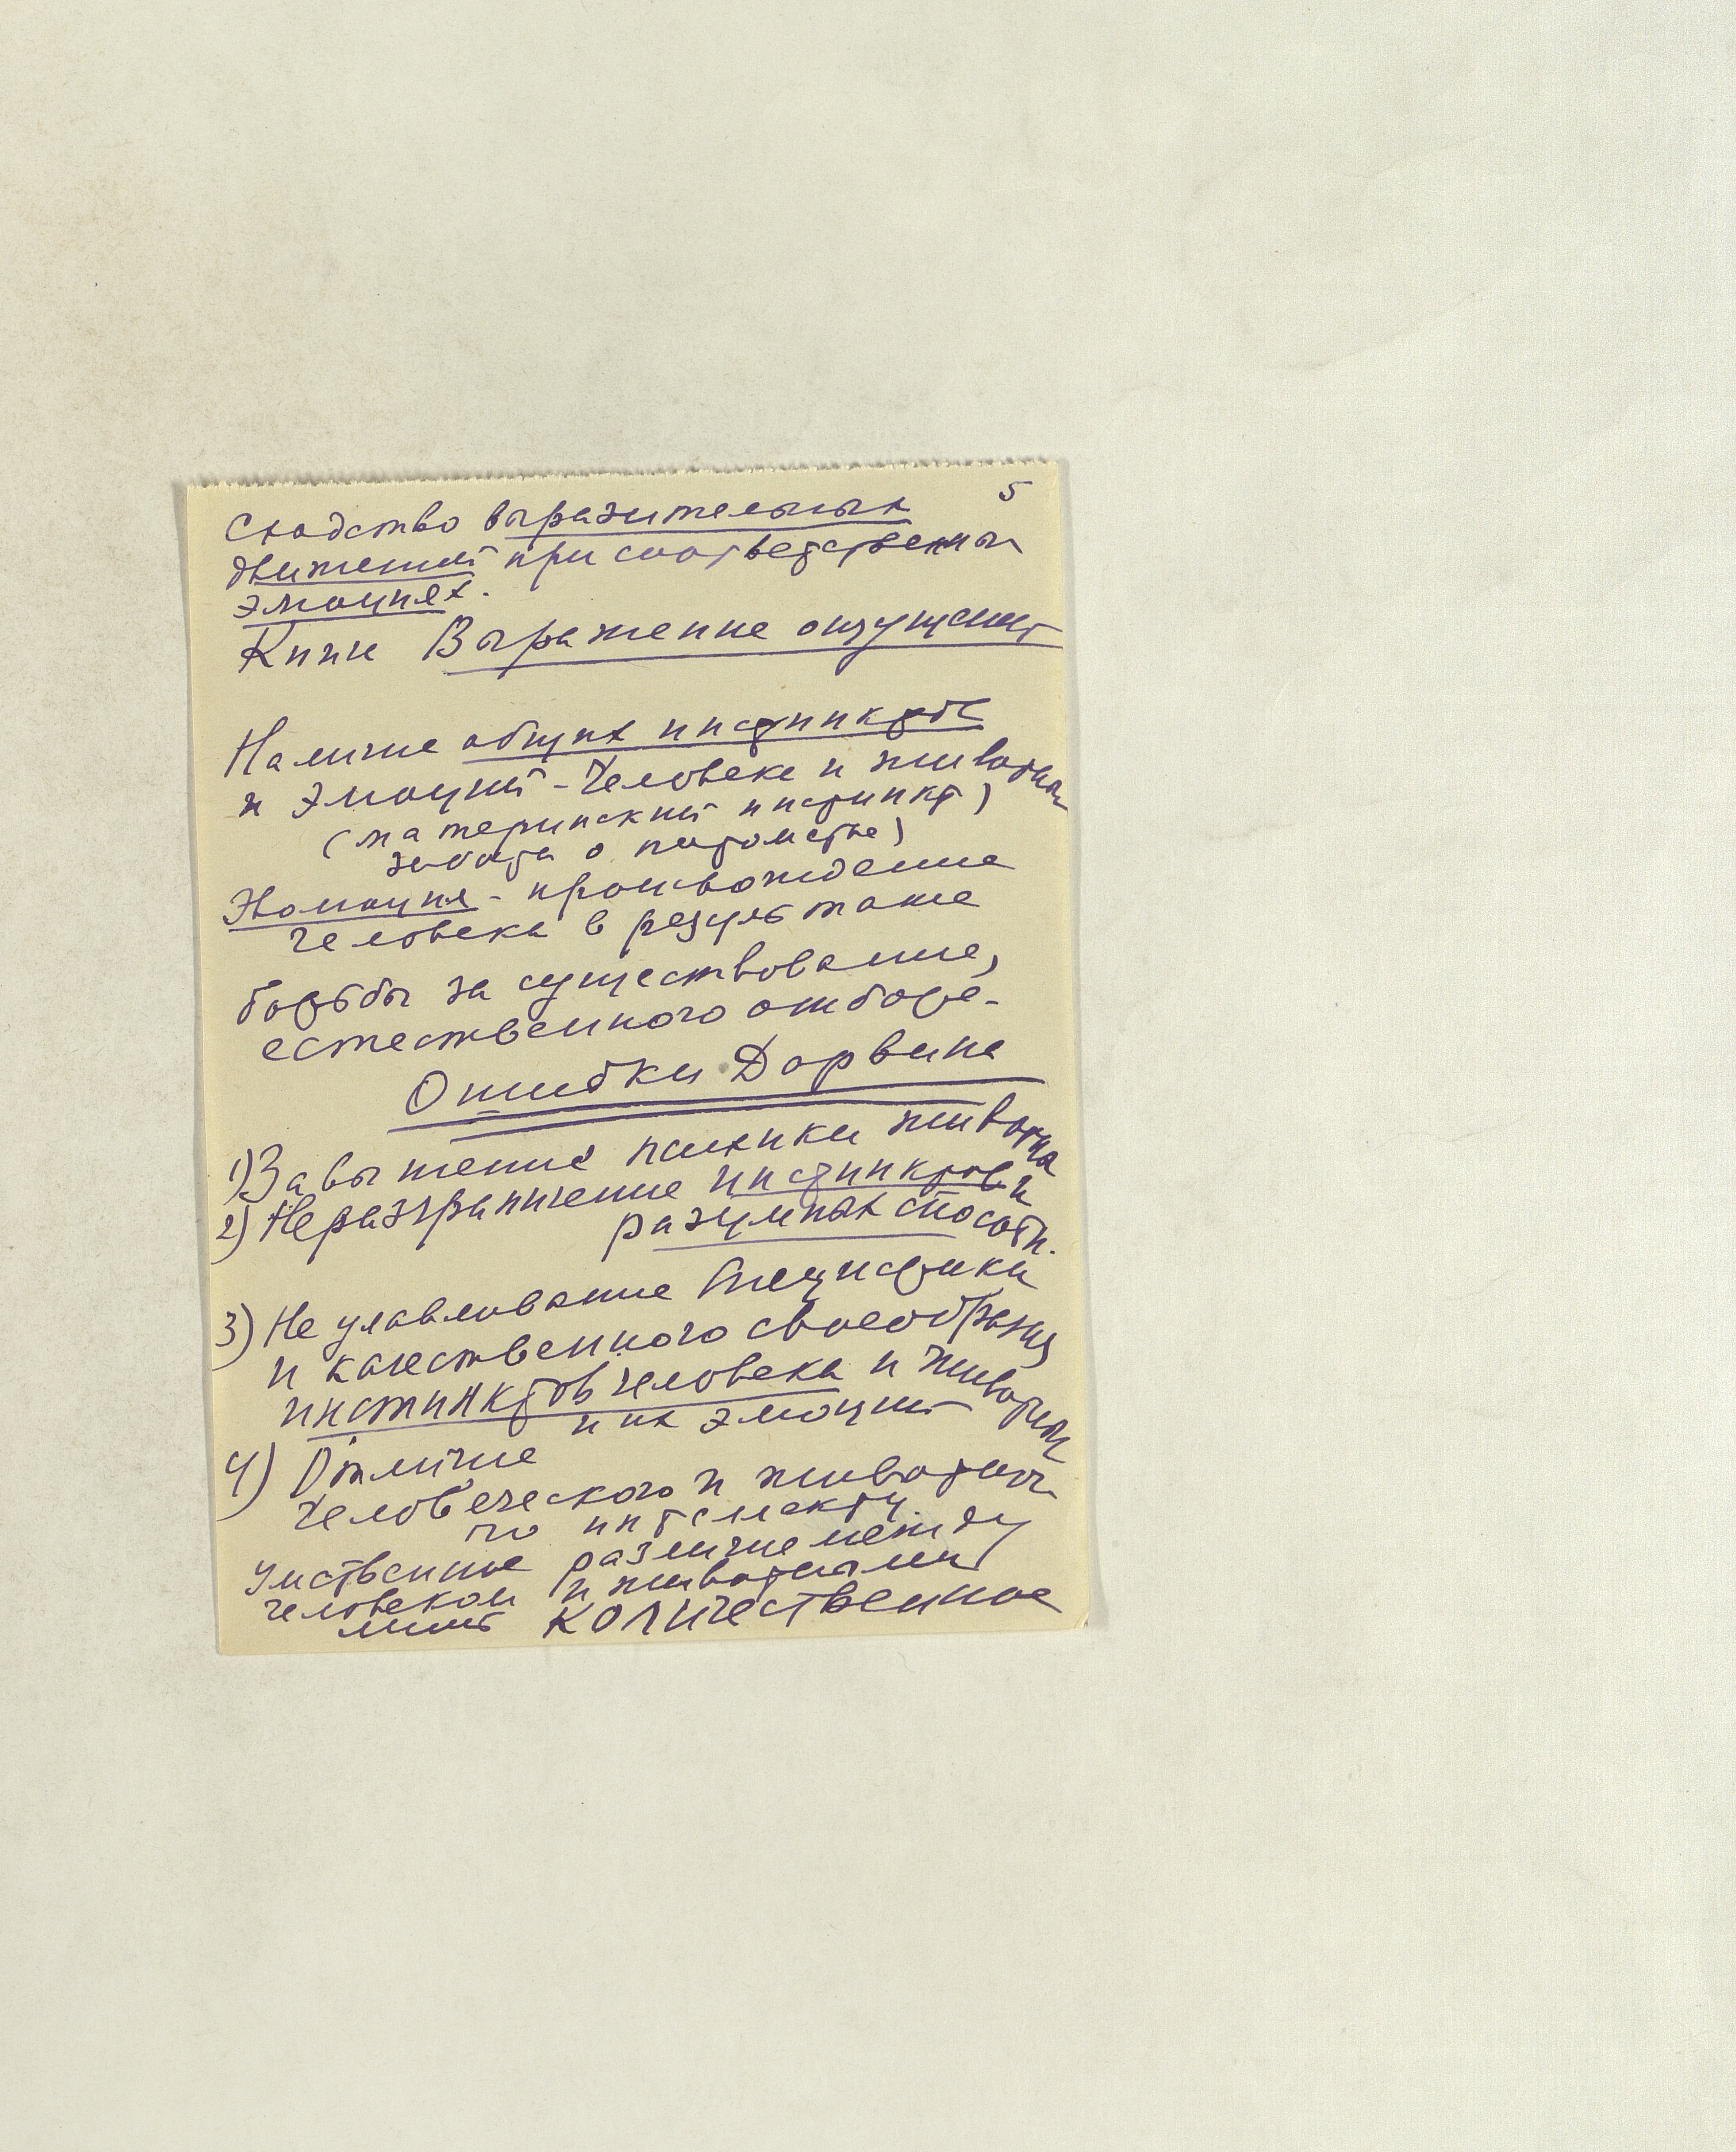 5
Сходство выразительных
движений при соответственных
эмоциях.
Книга Выражение ощущений
Наличие общих инстинктов
и эмоций - Человека и животных
(материнский инстинкт)
забота о потомстве)
Эволюция - происхождение
человека в результате
борьбы за существование,
естественного отбора-
Ошибки Дарвина
1) Завышение психики животных
2) Неразграничение инстинктов и
разумных способн.
3) Не улавливание специфики
и качественного своеобразия
инстинктов человека и животных
и их эмоций
4) Отличие
человеческого и животного
по интеллекту
Умственное различие между
человеком и животными
лишь количественное